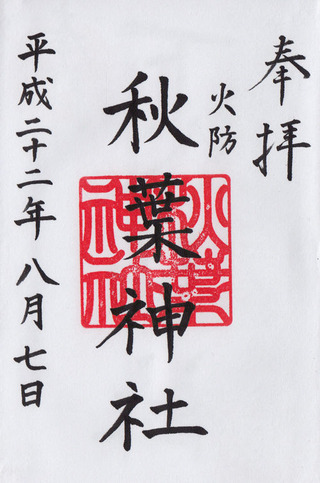 奉拝
火防
秋葉神社
秋葉神社
平成二十二年八月七日